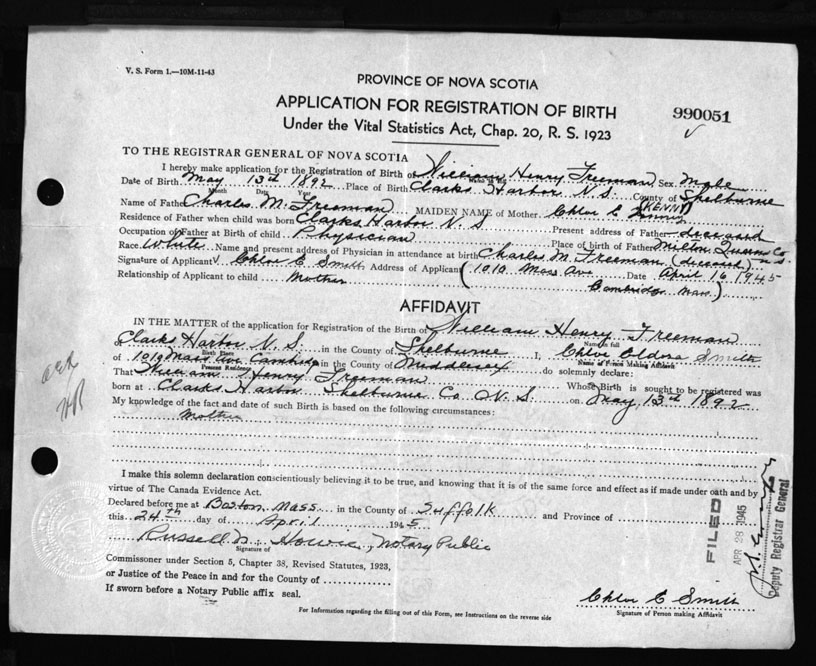 V. S. Form 1.—10M-11-43
PROVINCE OF NOVA SCOTIA
APPLICATION FOR REGISTRATION OF BIRTH
990051
Under the Vital Statistics Act, Chap. 20, R. S. 1923
TO THE REGISTRAR GENERAL OF NOVA SCOTIA
I hereby make application for the Registration of Birth of William Henry Freeman Sex Male
Date of Birth May 13th 1892 Place of Birth Clarks Harbor N. S. County of Shelburne
Month Day Year
Name of Father Charles M. Freeman MAIDEN NAME of Mother Chloe E
Residence of Father when child was born Clarks Harbor N. S Present address of Father deceased
Occupation of Father at Birth of child Physician Place of birth of Father Milton Queens Co N.S.
Race White Name and present address of Physician in attendance at birth Charles M. Freeman (deceased)
Signature of Applicant Chloe E Smith Address of Applicant (1010 Mass Ave Date April 16 1945
Relationship of Applicant to child Mother Cambridge Mass.)
AFFIDAVIT
IN THE MATTER of the application for Registration of the Birth of William Henry Freeman
Name in full
Clarks Harbor N. S. in the County of Shelburne I, Chloe Eldora Smith
Birth Place Name of Person Making Affidavit
of Mass Ave Cambridge in the County of Middlesex do solemnly declare:
Present Residence
That William Henry Freeman Whose Birth is sought to be registered was
born at Clarks Harbor Shelburne Co N. S. on May 13th 1892
My knowledge of the fact and date of such Birth is based on the following circumstances:
Mother
I make this solemn declaration conscientiously believing it to be true, and knowing that it is of the same force and effect as if made under oath and by
virtue of The Canada Evidence Act.
Declared before me at Boston, Mass in the County of Suffolk and Province of
this 24th day of April 1945
Russell Notary Public
Signature of
Commissioner under Section 5, Chapter 38, Revised Statutes, 1923,
or Justice of the Peace in and for the County of
If sworn before a Notary Public affix seal.
Chloe E Smith
Signature of Person making Affidavit
For Information regarding the filling out of this Form, see Instructions on the reverse side
FILED
APR 28 1945
Deputy Registrar General